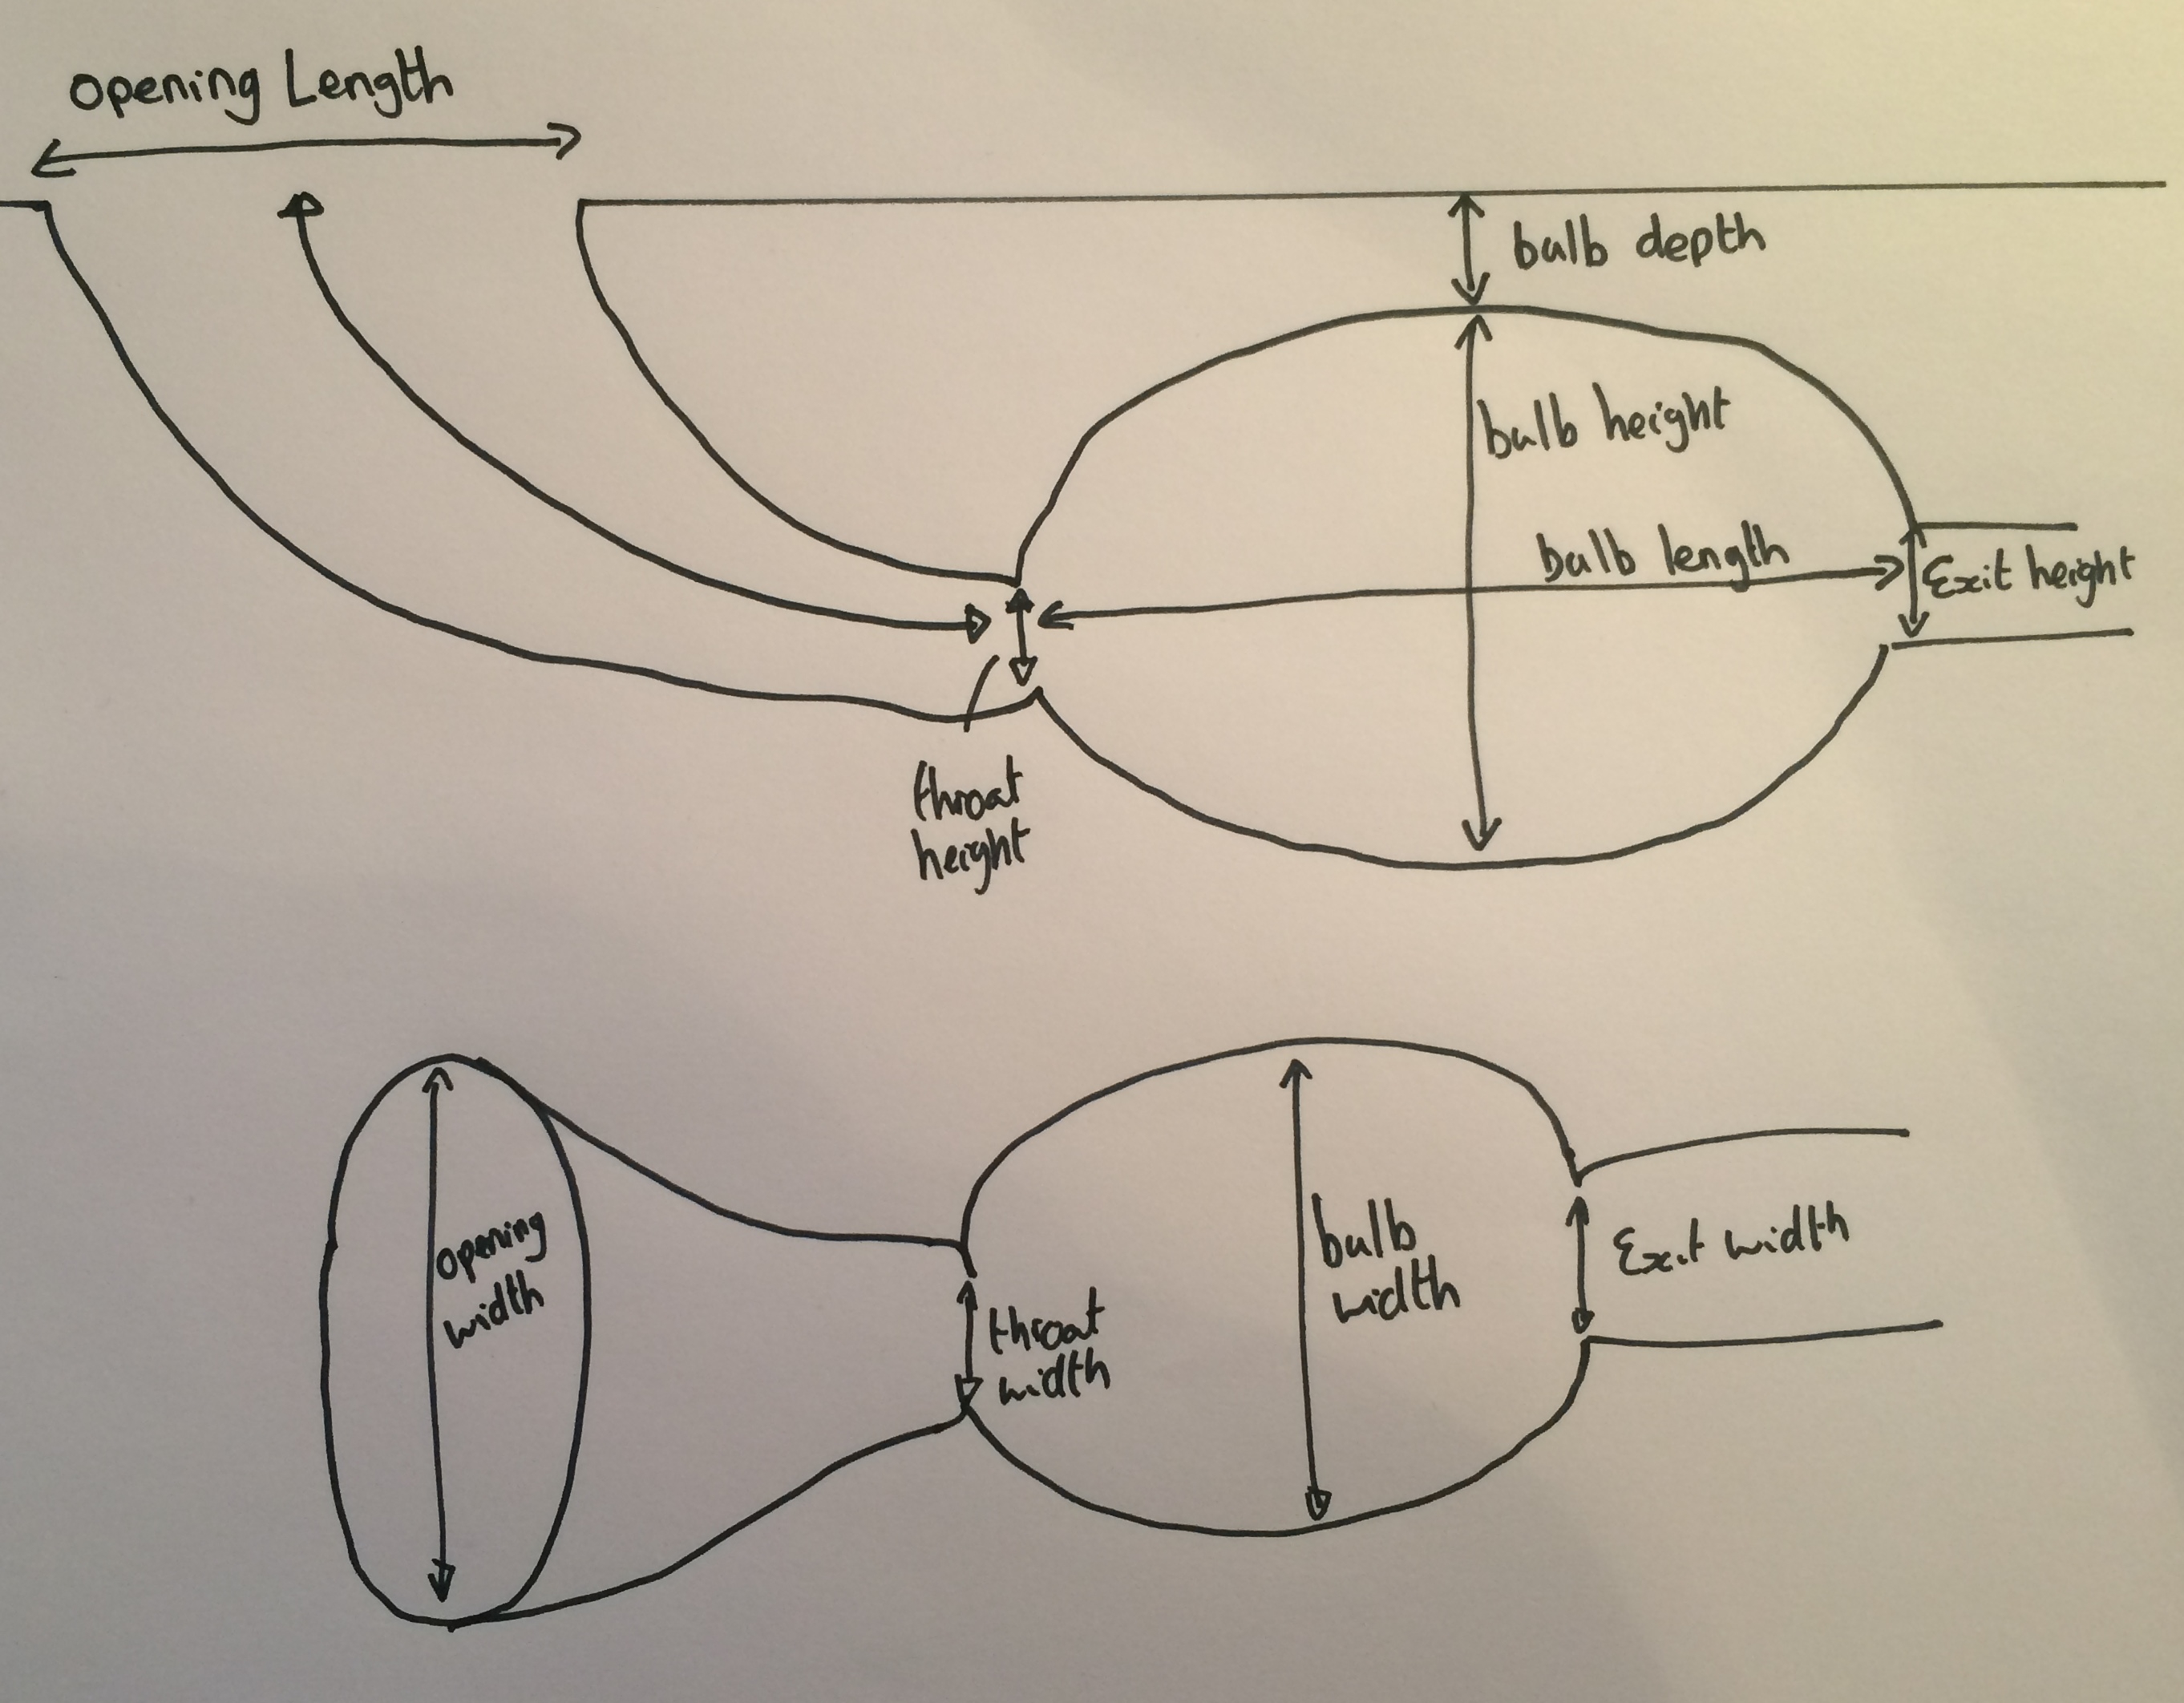 opening Length
bulb depth
bulb height
bulb length
Exit height
throat
height
opening
width
throat
width
bulb
width
Exit width